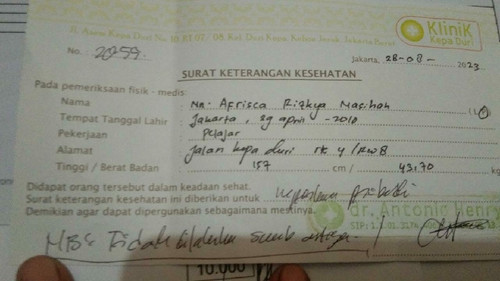 Klinik
Kepa Duri
Jl. Angsana Kepa Duri No. 15 RT 07/08 Kel. Duri Kepa, Kebon Jeruk, Jakarta Barat
No. 2059.
Jakarta, 28-08- 2023
SURAT KETERANGAN KESEHATAN
Pada pemeriksaan fisik - medis:
Nama : Nn. Afrisca Rizkya
Tempat Tanggal Lahir : Jakarta, 29 april - 2010
Pekerjaan : Pelajar
Alamat : Jalan kepa duri rt 4 / RW 8
Tinggi / Berat Badan : 157 cm / 43,70 kg
Didapat orang tersebut dalam keadaan sehat.
Surat keterangan kesehatan ini diberikan untuk
Demikian agar dapat dipergunakan sebagaimana mestinya.
dr. Antonio
SIP:
Tidak
10.000